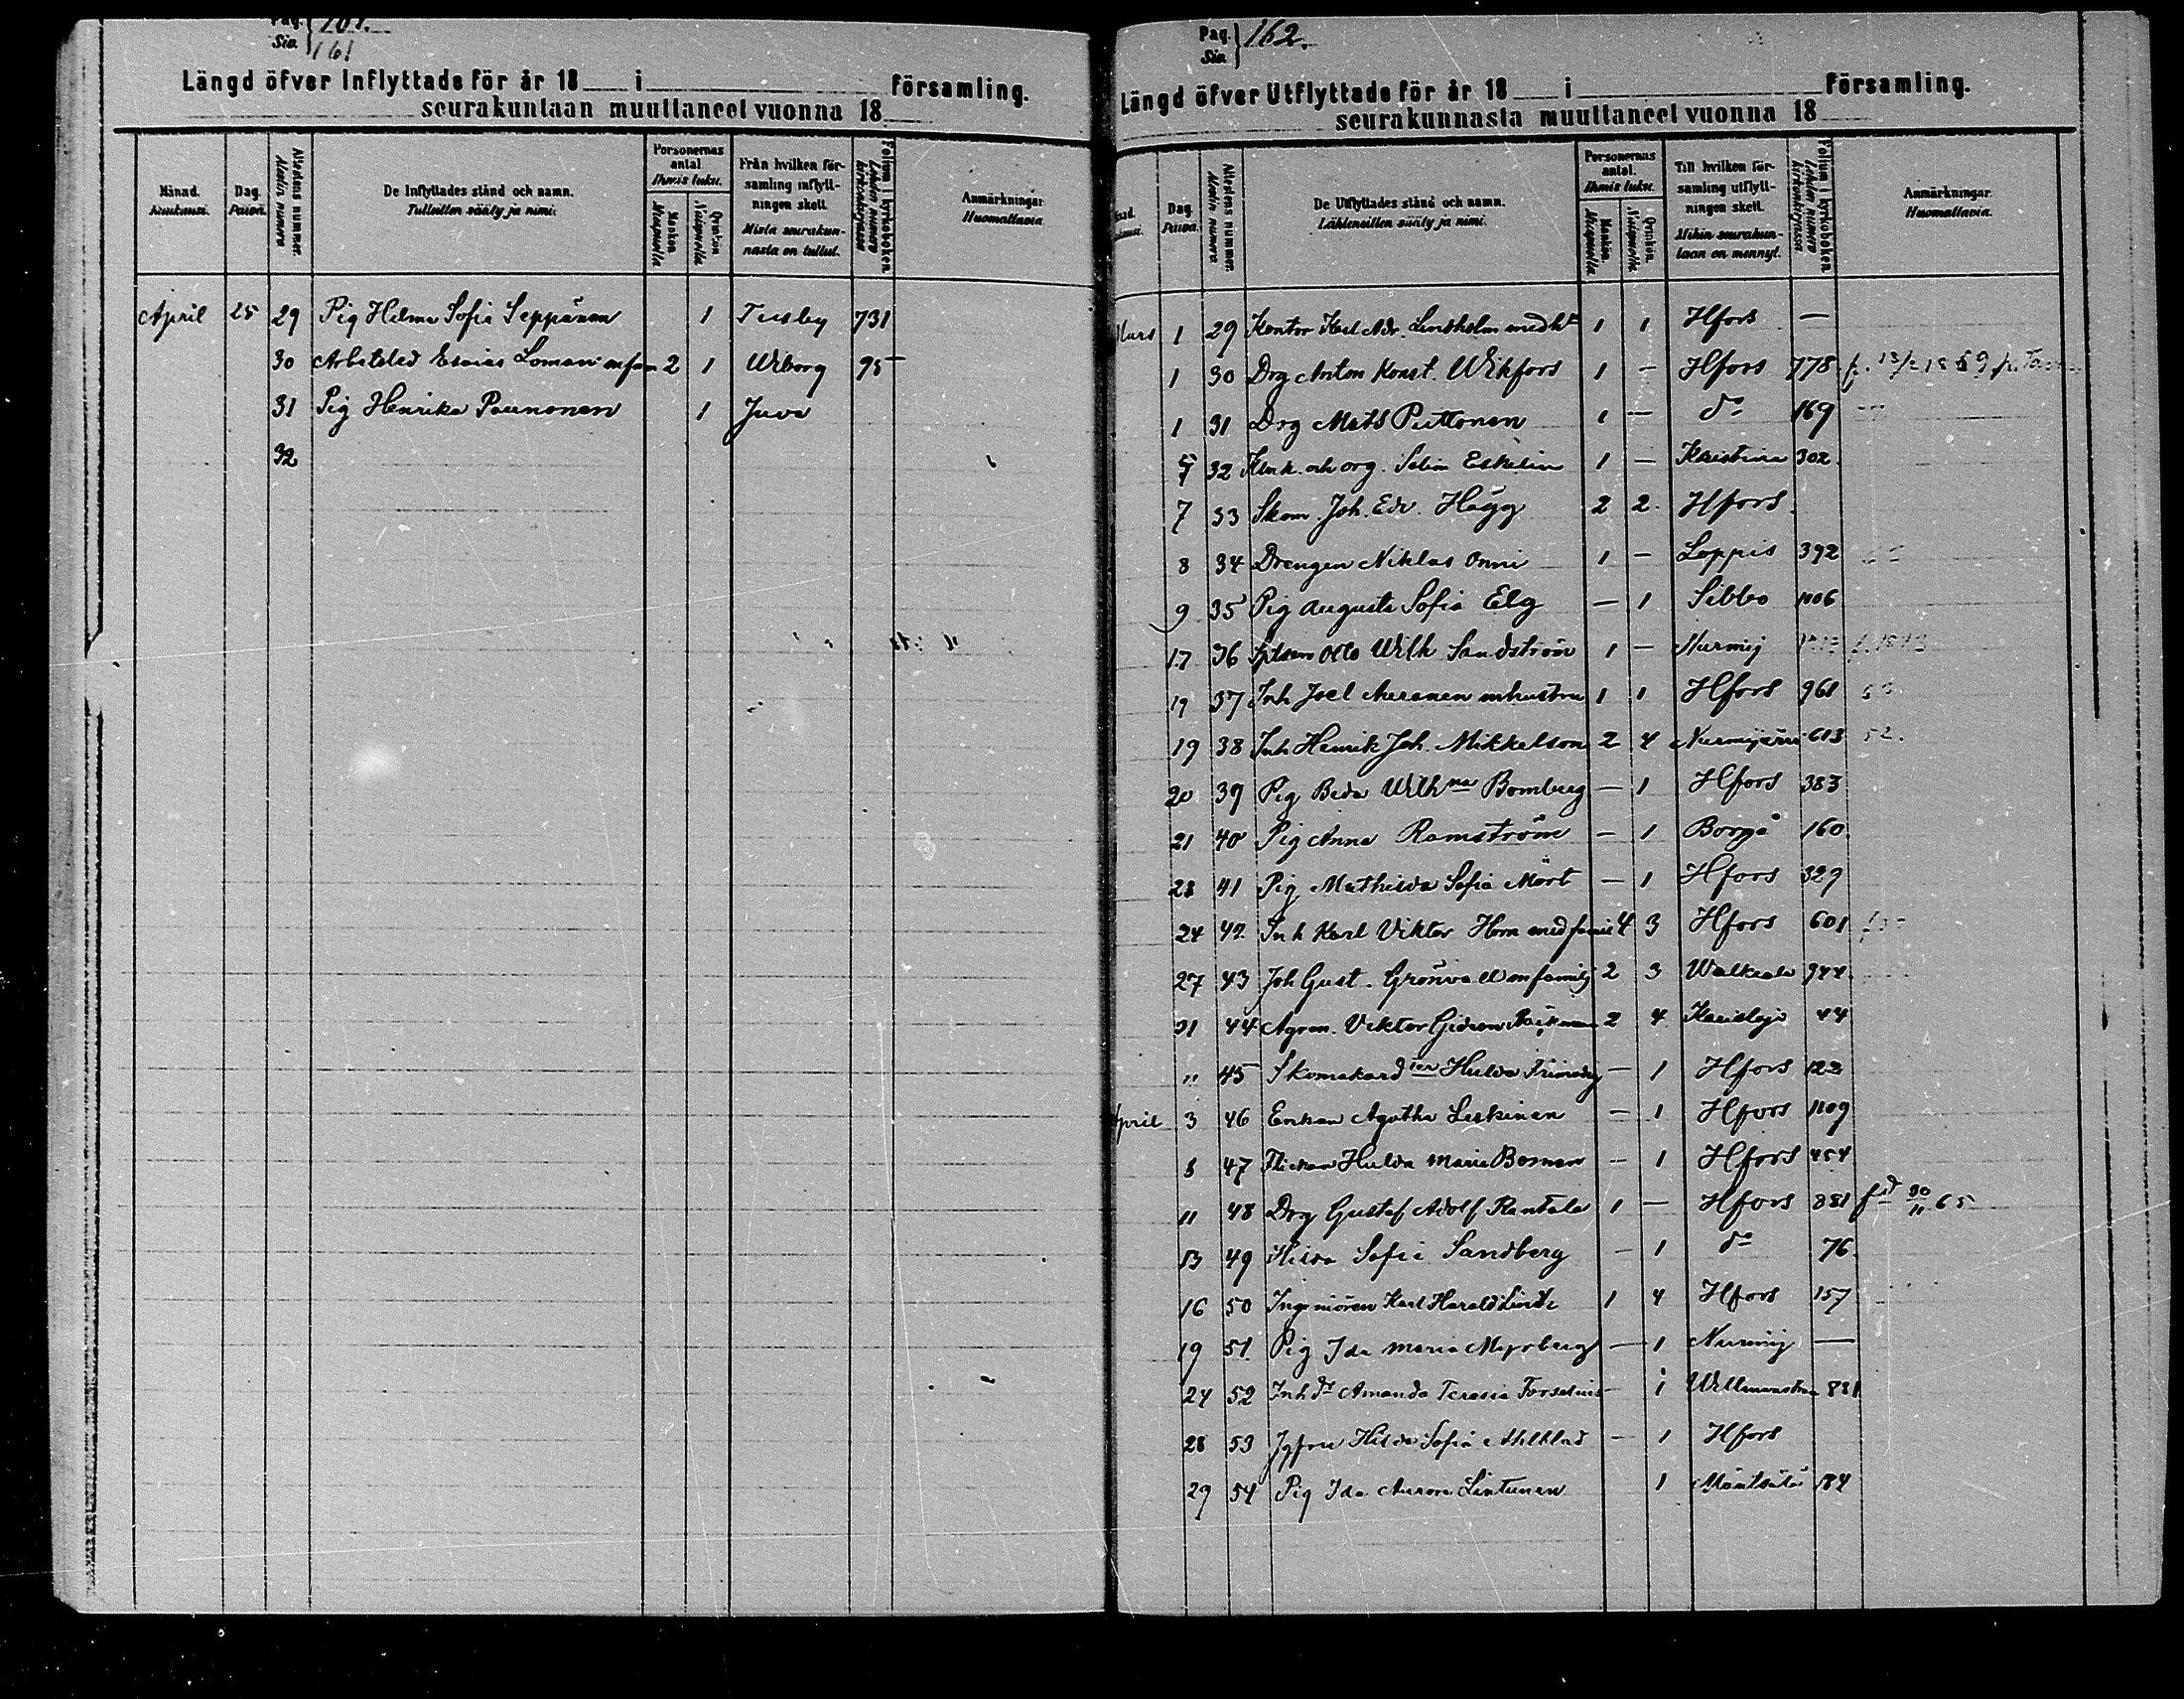 Pag. 161
Sio. 161
Längd öfver Inflyttade för år 18 i församling.
seurakuntaan muuttaneet vuonna 18
Månad. Kuukausi. Dag. Päivä. Attestens nummer. Alestin numero De Inflyttades stånd och namn. Tulleitten sääty ja nimi. Personernas antal. Ihmis luku. Mankön Miespuolia Qvinkön. Naispuolia Från hvilken församling inflyttningen skett. Mista seurakunnasta on tullut. Folium i kyrkoboken. Lehden numero kirkonkirjassa Anmärkningar. Huomattavia.
April 25 29 Pig Helma Sofia Seppänen 1 Tusby 731
30 Arbetsled Esaias Loman m fam 2 1 Wiborg 95
31 Pig Henrika Paunonen 1 Juva
32
Pag. Sio. 162.
Längd öfver Utflyttade för år 18 i församling.
seurakunnasta muuttaneet vuonna 18
Dag. Päivä. Attestens nummer. Alestin numero De Utflyttades stånd och namn. Lähteneitten sääty ja nimi. Personernas antal. Ihmis luku. Mankön. Miespuolia Qvinkön. Naispuolia Till hvilken församling utflyttningen skett. Mihin seurakuntaan on mennyt. Folium i kyrkoboken. Lehden numero kirkonkirjassa Anmärkningar. Huomattavia.
Mars 1 29 Kantor Karl Adr. Lindholm med h 1 1 Hfors —
1 30 Drg Anton Konst. Wikfors 1 — Hfors 778
1 31 Drg Mats Puttonen 1 — do 169
5 32 och org. Selim Eskelin 1 — Kristina 302
7 33 Skom. Joh. Edv. Hägg 2 2 Hfors
8 34 Drengen Niklas Onni 1 — Loppis 392
9 35 Pig Augusta Sofia Elg — 1 Sibbo 1006
17 36 Otto Wilh Sandström 1 — Nurmij
19 37 Inh Joel Meranen m hustru 1 1 Hfors 961
19 38 Inh Henrik Joh. Mikkelson 2 4 Nurmijärvi 613 52.
20 39 Pig Beda Wilhna Bomberg — 1 Hfors 383
21 40 Pig Anna Ramström — 1 Borgå 160
23 41 Pig Mathilda Sofia Mört — 1 Hfors 329
24 42 Inh Karl Viktor Horn med famil 4 3 Hfors 601
27 43 Joh Gust. Grönvall m familj 2 3 Walkeala 944
31 44 Agron. Viktor Gideon Bäckman 2 4 Karislojo 44
" 45 Skomakard ter Hulda — 1 Hfors 122
April 3 46 Enkan Agatha Leskinen — 1 Hfors 1109
8 47 Flickan Hulda Maria Boman — 1 Hfors 454
11 48 Drg Gustaf Adolf Rantala 1 — Hfors 881 fd 30/11 65
13 49 Hilda Sofia Sandberg — 1 do 76
16 50 Ingeniören Karl Harald Lindh 1 4 Hfors 157
19 51 Pig Ida Maria Myrberg — 1 Nurmij —
24 52 Inh dr Amanda Teresia Forselius — 1 Willmanstran 881
28 53 Jgfru Hilda Sofia Ahlblad — 1 Hfors
29 54 Pig Ida Aurora Lintunen 1 Mäntsälä 184